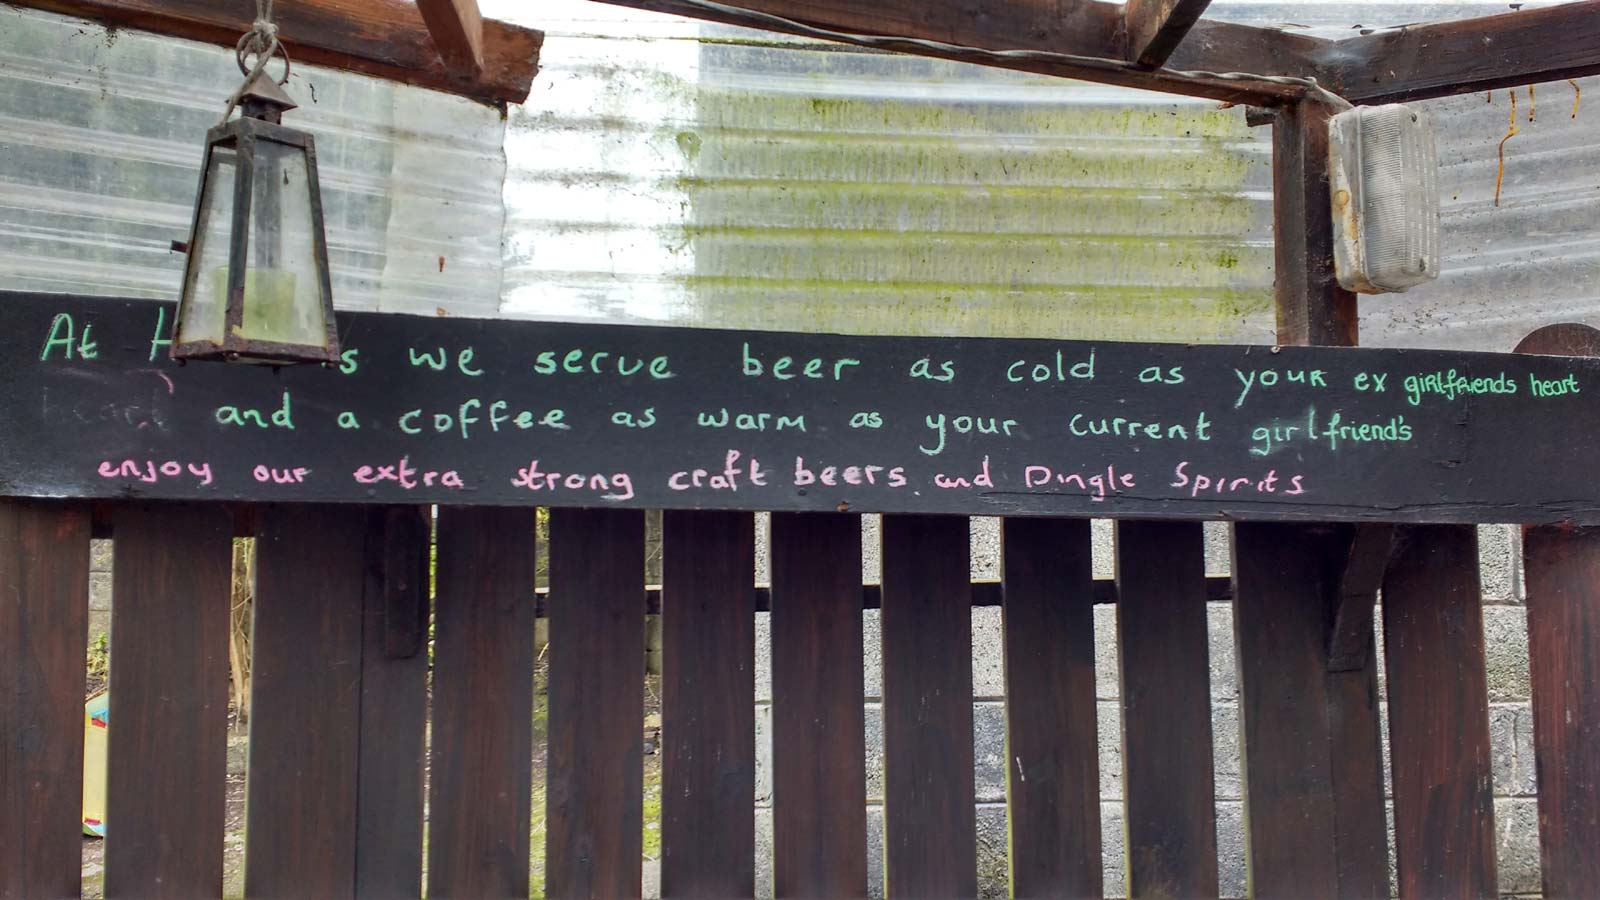 At we serve beer as cold as your ex girlfriends heart
and a coffee as warm as your current girlfriend's
enjoy our extra strong craft beers and Dingle Spirits